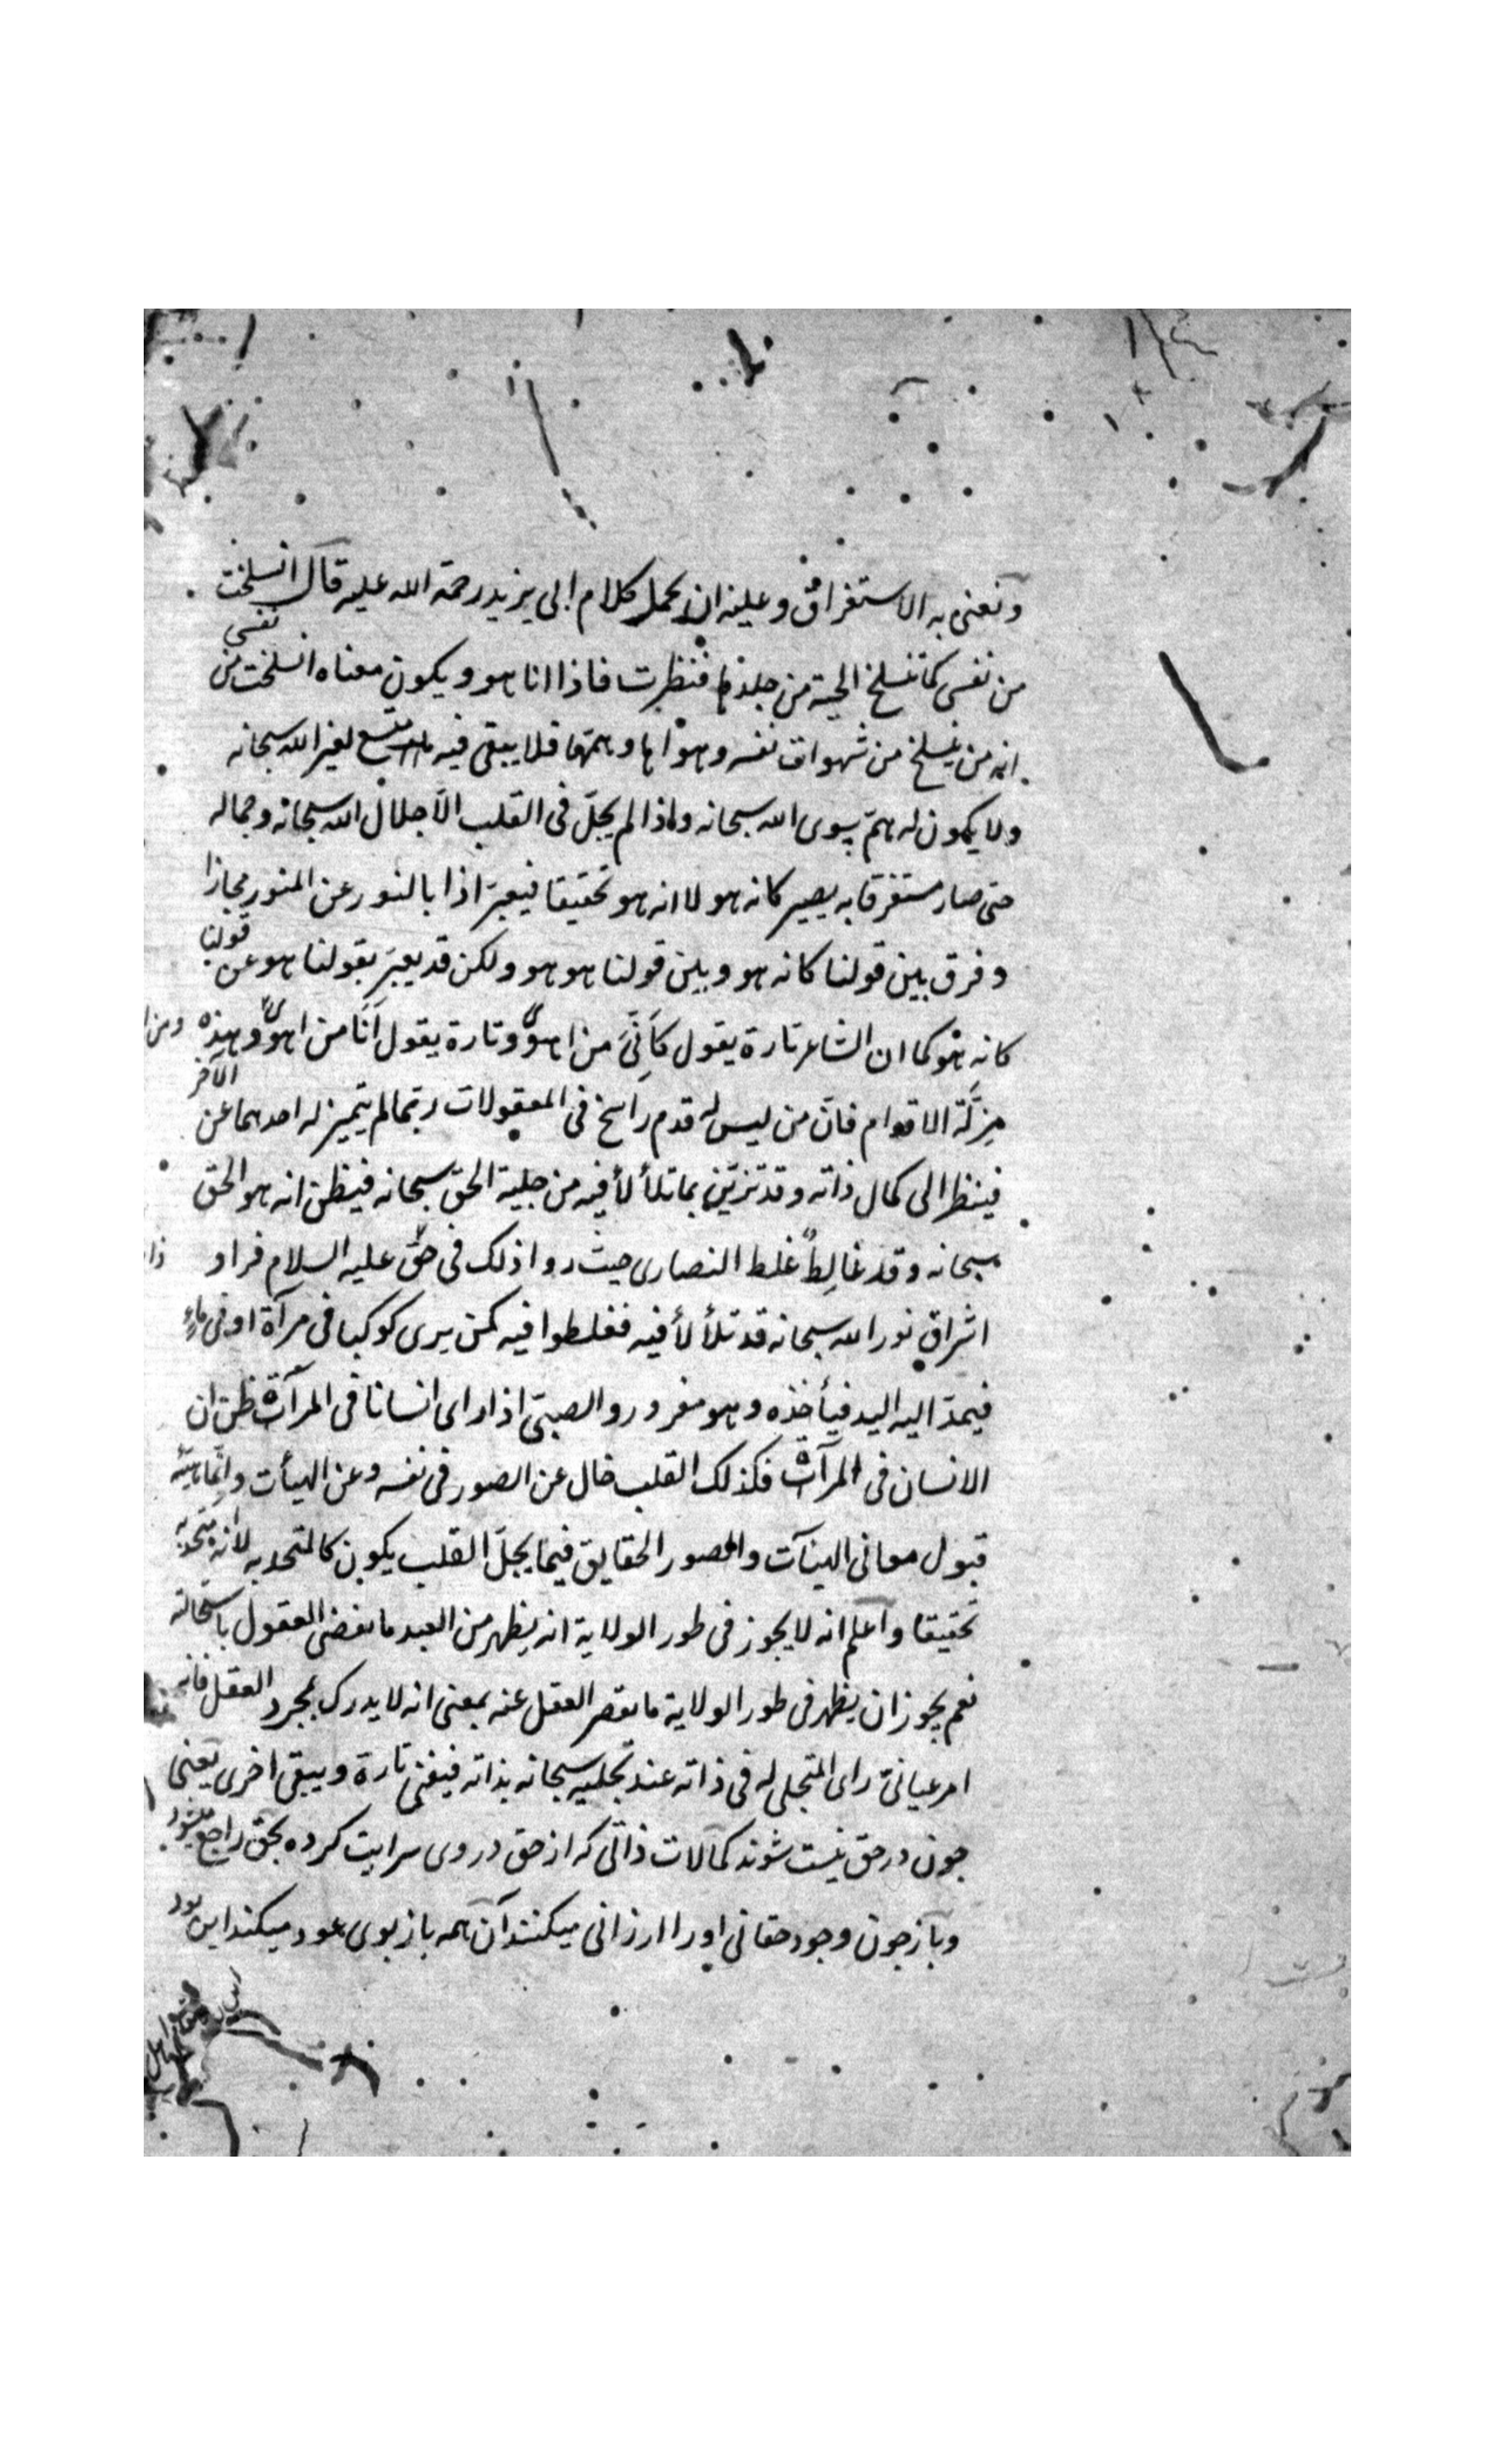 ونعنى به الاستغراق وعليه ان يحمل كلام ابى يزيد رحمة الله عليه قال انسلخت
من نفسى كما تنسلخ الحية من جلدها فنظرت فاذا انا هو ويكون معناه انسلخت من نفسى
انه من ينسلخ من شهوات نفسه وهواها وهمتها فلا يبقى فيه متسع لغير الله سبحانه
ولا يكون له هم سوى الله سبحانه واذا لم يحل فى القلب الا جلال الله سبحانه وجماله
حتى صار مستغرقا به يصير كانه هو لا انه هو تحقيقا فيعبر اذا بالنور عن المنور مجازا
وفرق بين قولنا كانه هو وبين قولنا هو هو ولكن قد يعبر بقولنا هو عن قولنا
كانه هو كما ان الشاعر تارة يقول كأنى من اهوى وتارة يقول انا من اهوى وهذه
مزلة الاقدام فان من ليس له قدم راسخ فى المعقولات ربما لم يتميز له احدهما عن الآخر
فينظر الى كمال ذاته وقد تزين بما تلألأ فيه من جلية الحق سبحانه فيظن انه هو الحق
سبحانه وقد غالط غلط النصارى حيث رووا ذلك فى حق عليه السلام فراو
اشراق نور الله سبحانه قد تلألأ فيه فغلطوا فيه كمن يرى كوكبا فى مرآة او فى ماء
فيمد اليه اليد فيأخذه وهو مغرور والصبى اذا راى انسانا فى المرآة ظن ان
الانسان فى المرآة فكذلك القلب خال عن الصور فى نفسه وعن الهيأت وانما هيئته
قبول معانى الهيآت والصور الحقايق فيما يحل القلب يكون كالمتحد به لا انه متحد به
تحقيقا واعلم انه لا يجوز فى طور الولاية انه يظهر من العبد ما يقضى العقول باستحالته
نعم يجوز ان يظهر فى طور الولاية ما يقصر العقل عنه بمعنى انه لا يدرك بمجرد العقل فانه
امر عيانى راى المتجلى له فى ذاته عند تجليه سبحانه بذاته فيفنى تارة ويبقى اخرى يعنى
جون در حق نيست شوند كمالات ذاتى كه از حق در وى سرايت كرده بحق راجع ميشود
وباز جون وجود حقانى او را ارزانى ميكنند آن همه باز بوى عود ميكند اين بود